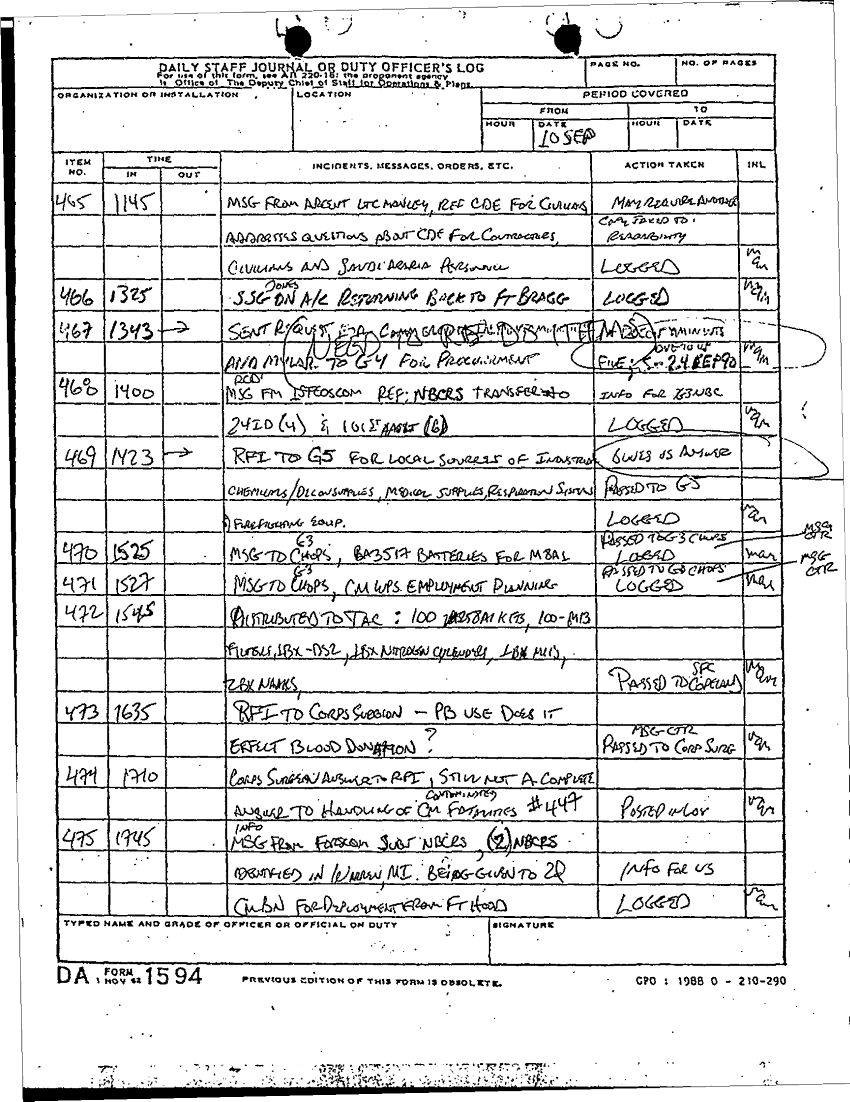 DAILY STAFF JOURNAL OR DUTY OFFICER'S LOG
For use of this form, see AR 220-15; the proponent agency
is Office of The Deputy Chief of Staff for Operations & Plans.
PAGE NO.
NO. OF PAGES
ORGANIZATION OR INSTALLATION
LOCATION
PERIOD COVERED
FROM
TO
HOUR
DATE
HOUR
DATE
10 SEP
ITEM NO.
TIME
IN
OUT
INCIDENTS, MESSAGES, ORDERS, ETC.
ACTION TAKEN
INL
465 1145 MSG FROM ARCENT LTC MANLEY, REF CDE FOR CIVILIANS MAY REQUIRE ANOTHER
COPY FAXED TO
ADDRESSES QUESTIONS ABOUT CDE FOR CONTRACTORS, READABILITY
CIVILIANS AND SAUDI ARABIA PERSONNEL LOGGED
466 1325 SSG JONES ON A/C RETURNING BACK TO FT BRAGG LOGGED
467 1343 → SENT REQUEST,
AND MYLAR TO G4 FOR PROCUREMENT FILE: 24 SEP 90
468 1400 RCD' MSG FM 1STCOSCOM REF: NBCRS TRANSFER TO INFO FOR G3 NBC
24ID (4) & 101ST AASLT (6) LOGGED
469 1423 → RFI TO G5 FOR LOCAL SOURCES OF INDUSTRIAL GIVES US ANSWER
CHEMICALS/DECON SUPPLIES, MEDICAL SUPPLIES, RESPIRATION SYSTEMS PASSED TO G5
FIREFIGHTING EQUIP. LOGGED
470 1525 MSG TO G3 CHOPS, BA3517 BATTERIES FOR M8A1 PASSED TO G3 CHOPS
LOGGED
MSG CTR
471 1527 MSG TO G3 CHOPS, CM WPS EMPLOYMENT PLANNING PASSED TO G3 CHOPS
LOGGED
MSG CTR
472 1545 DISTRIBUTED TO TAC: 100 M258A1 KITS, 100-M13
FILTERS, 1BX-DS2, 1BX NITROGEN CYLINDERS, 1BX M13,
2BX PASSED TO SPC COPELAND
473 1635 RFI TO CORPS SURGEON - PB USE DOES IT
EFFECT BLOOD DONATION? MSG-CTR PASSED TO CORP SURG
474 1710 CORPS SURGEON ANSWER TO RFI, STILL NOT A COMPLETE
ANSWER TO HANDLING OF CONTAMINATED CM FATALITIES #447 POSTED IN LOG
475 1745 INFO MSG FROM FORSCOM SUBJ NBCRS, (2) NBCRS
IDENTIFIED IN WARREN, MI. BEING GIVEN TO 2D INFO FOR US
CML BN FOR DEPLOYMENT FROM FT HOOD LOGGED
TYPED NAME AND GRADE OF OFFICER OR OFFICIAL ON DUTY
SIGNATURE
DA FORM 1 NOV 62 1594
PREVIOUS EDITION OF THIS FORM IS OBSOLETE.
GPO : 1988 O - 210-290